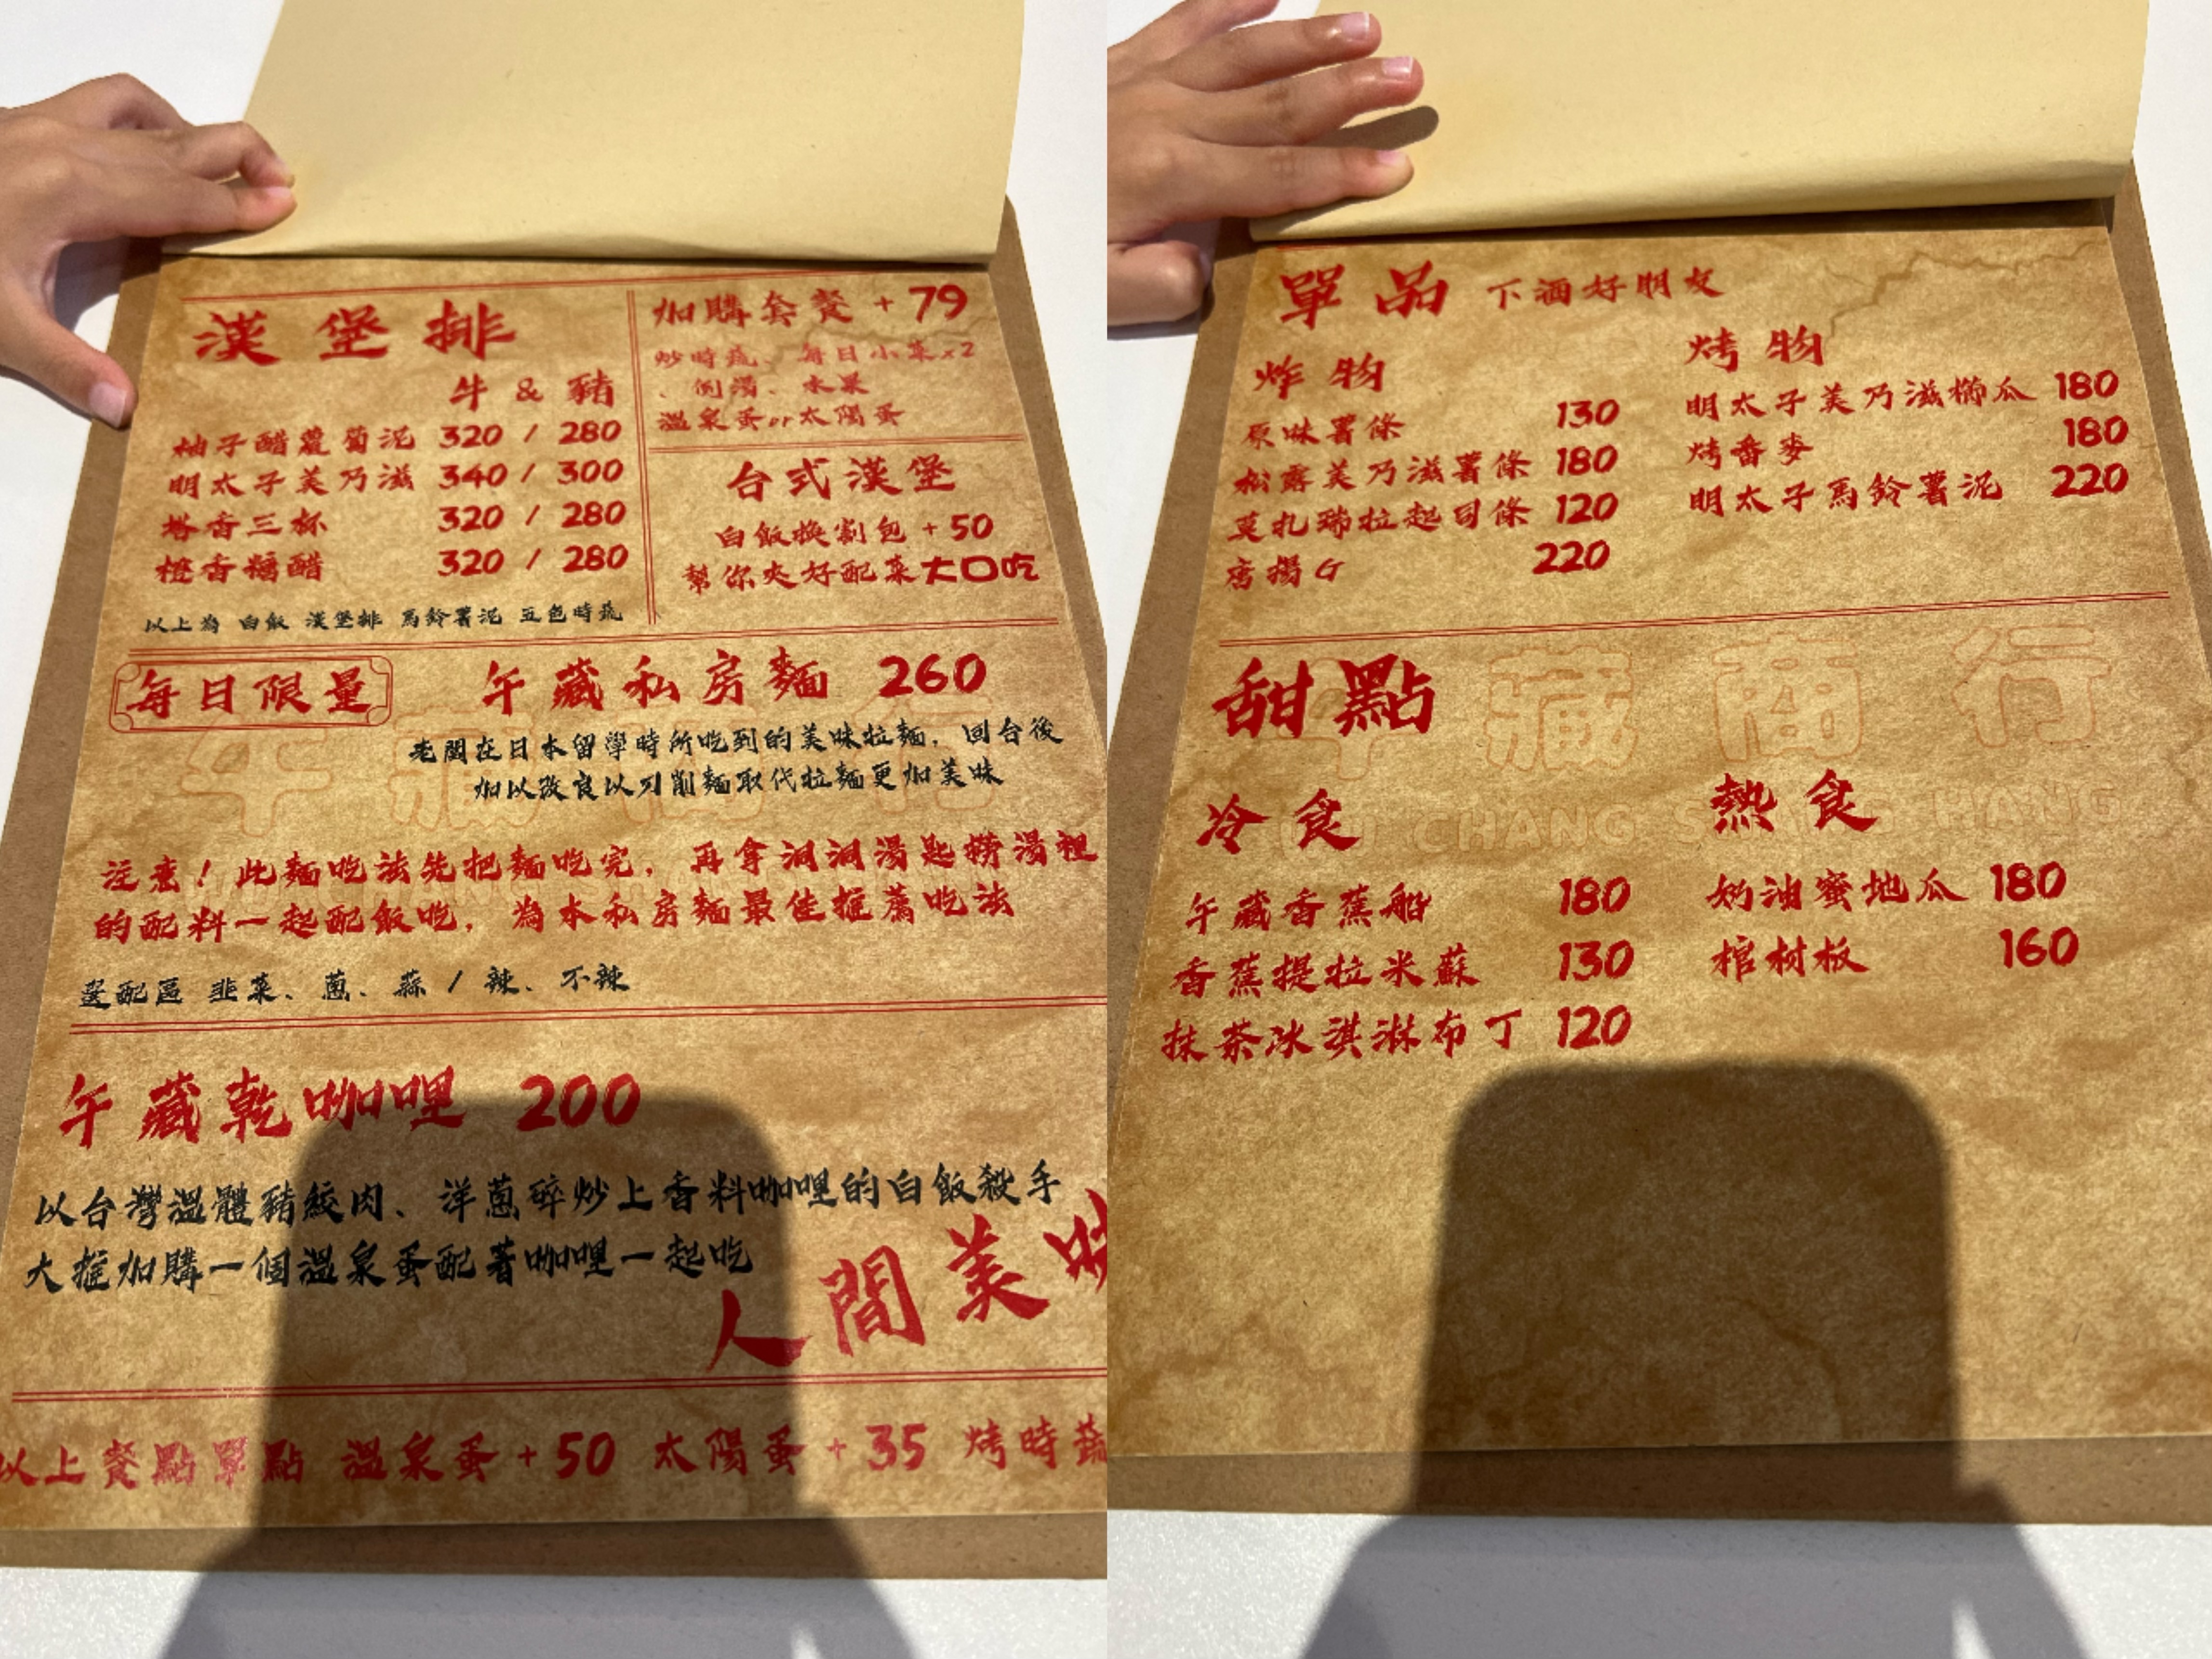 漢堡排
牛 & 豬
柚子醋蘿蔔泥 320 / 280
明太子美乃滋 340 / 300
塔香三杯 320 / 280
橙香糖醋 320 / 280
以上為 白飯 漢堡排 馬鈴薯泥 五色時蔬
加購套餐 + 79
炒時蔬、每日小菜x2
、例湯、水果
溫泉蛋or太陽蛋
台式漢堡
白飯換割包 + 50
幫你夾好配菜大口吃
每日限量
午藏私房麵 260
老闆在日本留學時所吃到的美味拉麵，回台後
加以改良以刀削麵取代拉麵更加美味
注意！此麵吃法先把麵吃完，再拿洞洞湯匙撈湯裡
的配料一起配飯吃，為本私房麵最佳推薦吃法
選配區 韭菜、蔥、蒜 / 辣、不辣
午藏乾咖哩 200
以台灣溫體豬絞肉、洋蔥碎炒上香料咖哩的白飯殺手
大推加購一個溫泉蛋配著咖哩一起吃
人間美味
以上餐點單點 溫泉蛋 + 50 太陽蛋 + 35 烤時蔬
單品 下酒好朋友
炸物
原味薯條 130
松露美乃滋薯條 180
莫扎瑞拉起司條 120
唐揚G 220
烤物
明太子美乃滋櫛瓜 180
烤番麥 180
明太子馬鈴薯泥 220
甜點
午藏商行
WU CHANG SHANG HANG
冷食
午藏香蕉船 180
香蕉提拉米蘇 130
抹茶冰淇淋布丁 120
熱食
奶油蜜地瓜 180
棺材板 160